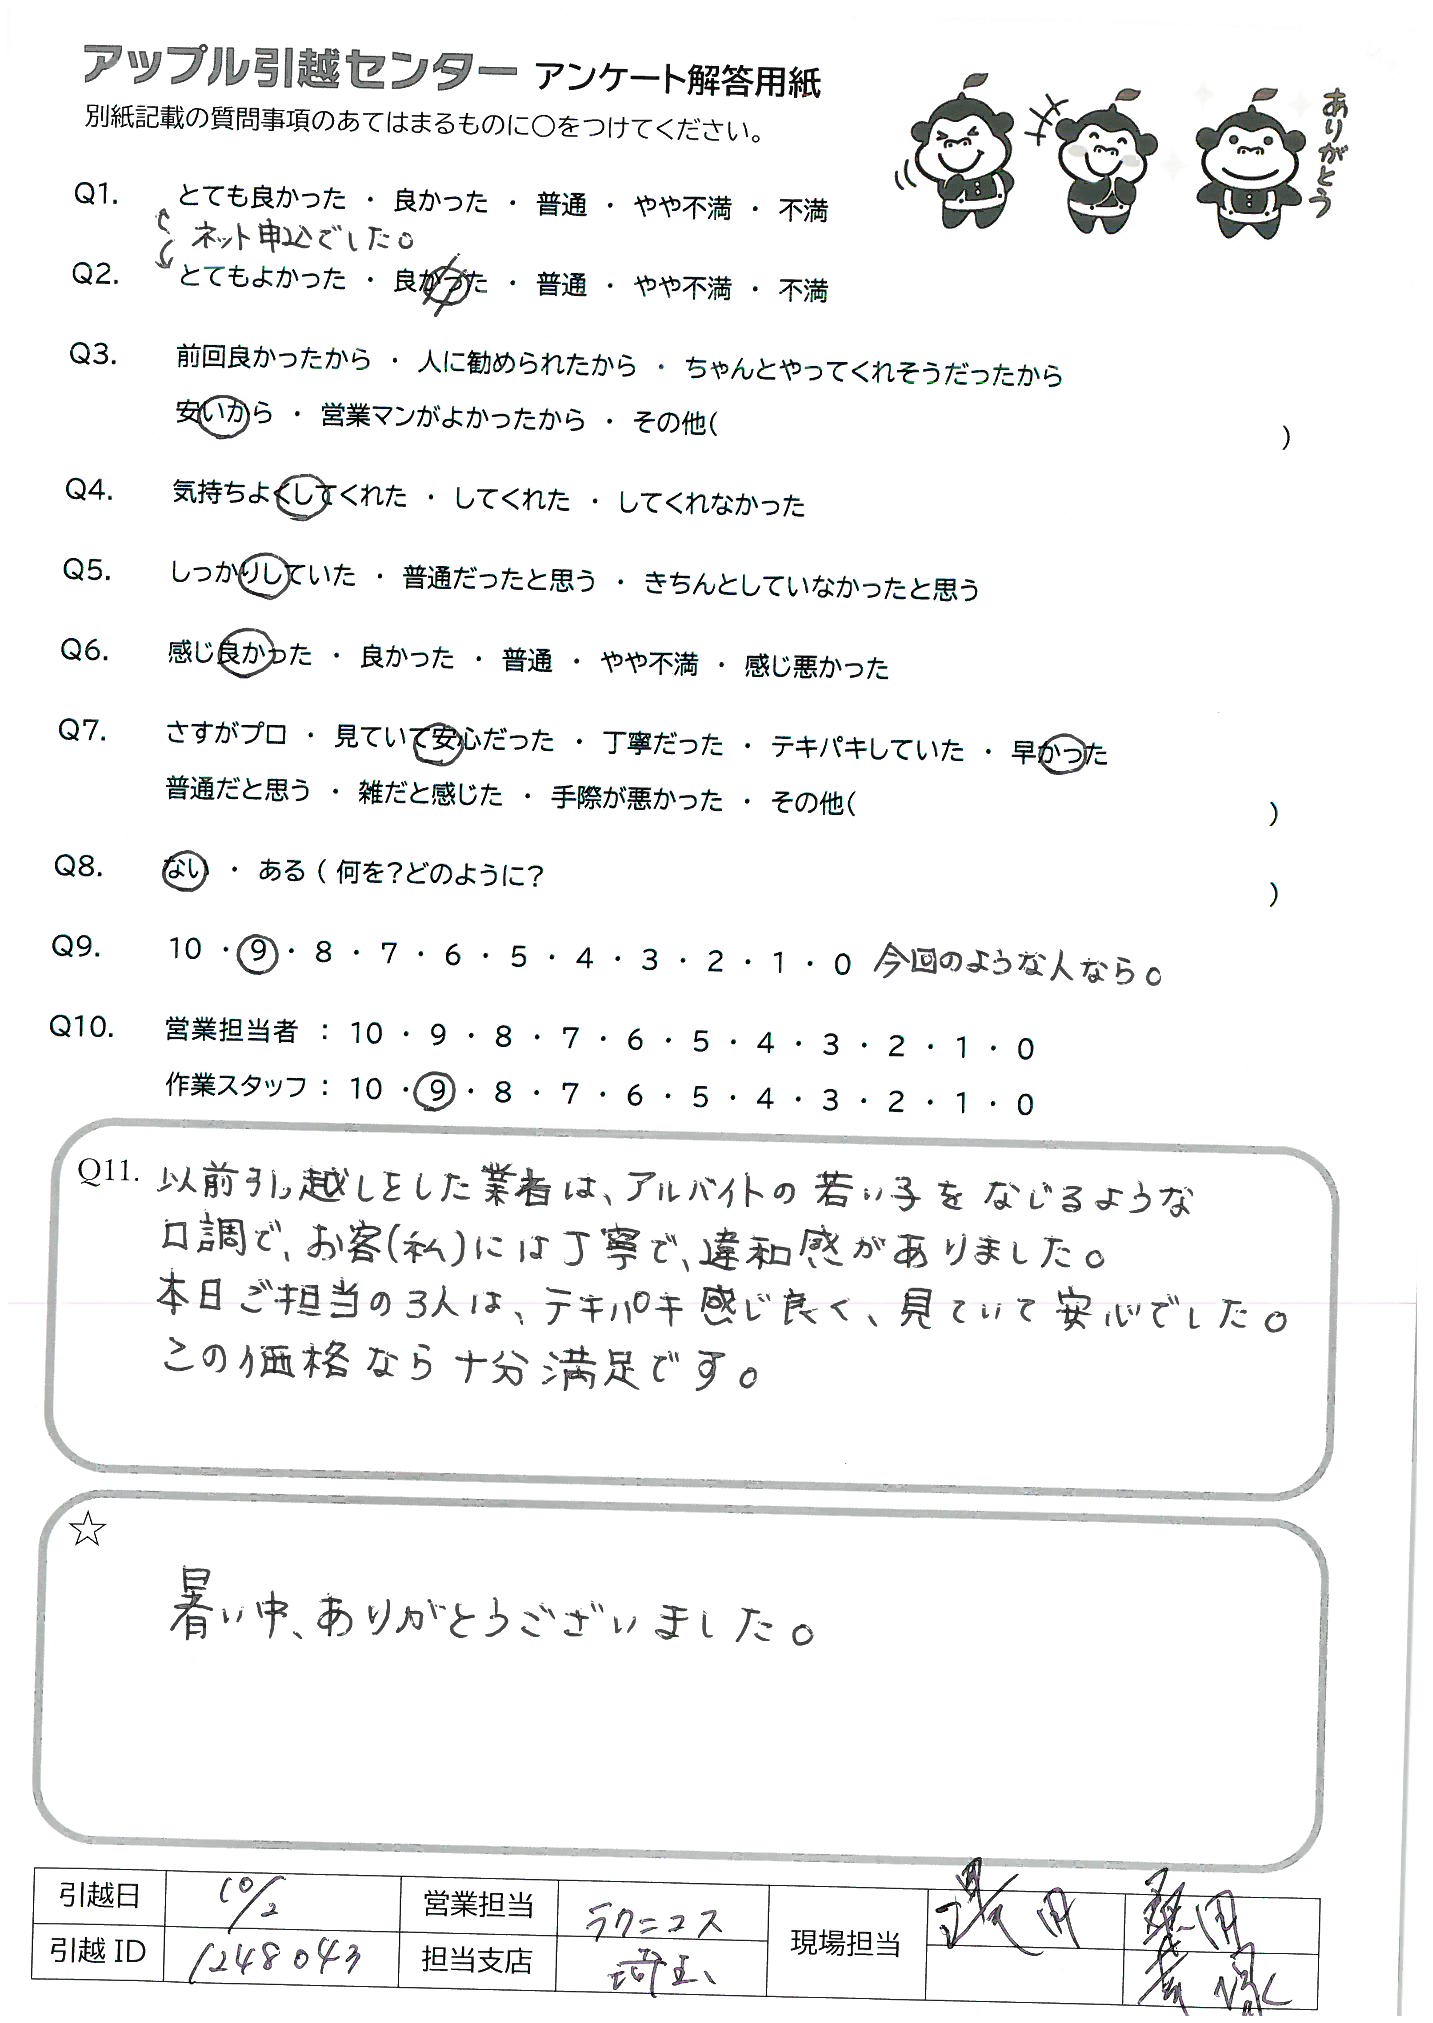 アップル引越センター アンケート解答用紙
別紙記載の質問事項のあてはまるものに〇をつけてください。
ありがとう
Q1. とても良かった ・ 良かった ・ 普通 ・ やや不満 ・ 不満
ネット申込でした。
Q2. とてもよかった ・ 良かった ・ 普通 ・ やや不満 ・ 不満
Q3. 前回良かったから ・ 人に勧められたから ・ ちゃんとやってくれそうだったから
安いから ・ 営業マンがよかったから ・ その他( )
Q4. 気持ちよくしてくれた ・ してくれた ・ してくれなかった
Q5. しっかりしていた ・ 普通だったと思う ・ きちんとしていなかったと思う
Q6. 感じ良かった ・ 良かった ・ 普通 ・ やや不満 ・ 感じ悪かった
Q7. さすがプロ ・ 見ていて安心だった ・ 丁寧だった ・ テキパキしていた ・ 早かった
普通だと思う ・ 雑だと感じた ・ 手際が悪かった ・ その他( )
Q8. ない ・ ある ( 何を?どのように? )
Q9. 10 ・ 9 ・ 8 ・ 7 ・ 6 ・ 5 ・ 4 ・ 3 ・ 2 ・ 1 ・ 0 今回のような人なら。
Q10. 営業担当者 : 10 ・ 9 ・ 8 ・ 7 ・ 6 ・ 5 ・ 4 ・ 3 ・ 2 ・ 1 ・ 0
作業スタッフ : 10 ・ 9 ・ 8 ・ 7 ・ 6 ・ 5 ・ 4 ・ 3 ・ 2 ・ 1 ・ 0
Q11. 以前引っ越しをした業者は、アルバイトの若い子をなじるような
口調で、お客(私)には丁寧で、違和感がありました。
本日ご担当の3人は、テキパキ感じ良く、見ていて安心でした。
この価格なら十分満足です。
☆
暑い中、ありがとうございました。
引越日 10/2 営業担当 ラクニコス 現場担当
引越ID 1248043 担当支店 埼玉